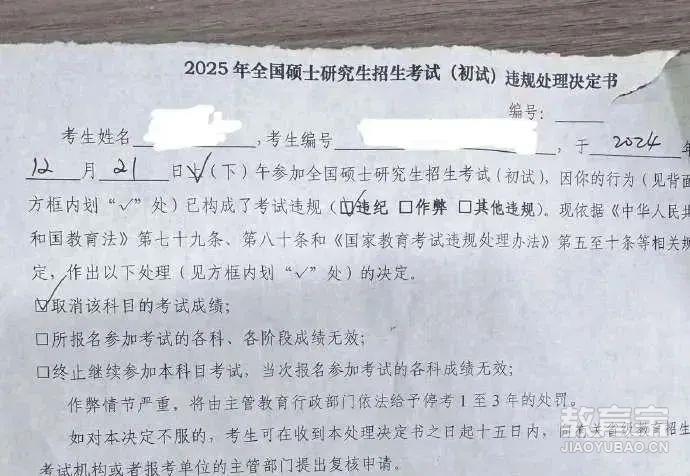 2025年全国硕士研究生招生考试（初试）违规处理决定书
编号：
考生姓名 ，考生编号 ，于 2024 年
12 月 21 日上（下）午参加全国硕士研究生招生考试（初试），因你的行为（见背面
方框内划“√”处）已构成了考试违规（☑违纪 □作弊 □其他违规）。现依据《中华人民共
和国教育法》第七十九条、第八十条和《国家教育考试违规处理办法》第五至十条等相关规
定，作出以下处理（见方框内划“√”处）的决定。
☑取消该科目的考试成绩；
□所报名参加考试的各科、各阶段成绩无效；
□终止继续参加本科目考试，当次报名参加考试的各科成绩无效；
作弊情节严重，将由主管教育行政部门依法给予停考1至3年的处罚。
如对本决定不服的，考生可在收到本处理决定书之日起十五日内，向有关省级教育招生
考试机构或者报考单位的主管部门提出复核申请。
教育宝
JIAOYUBAO.CN